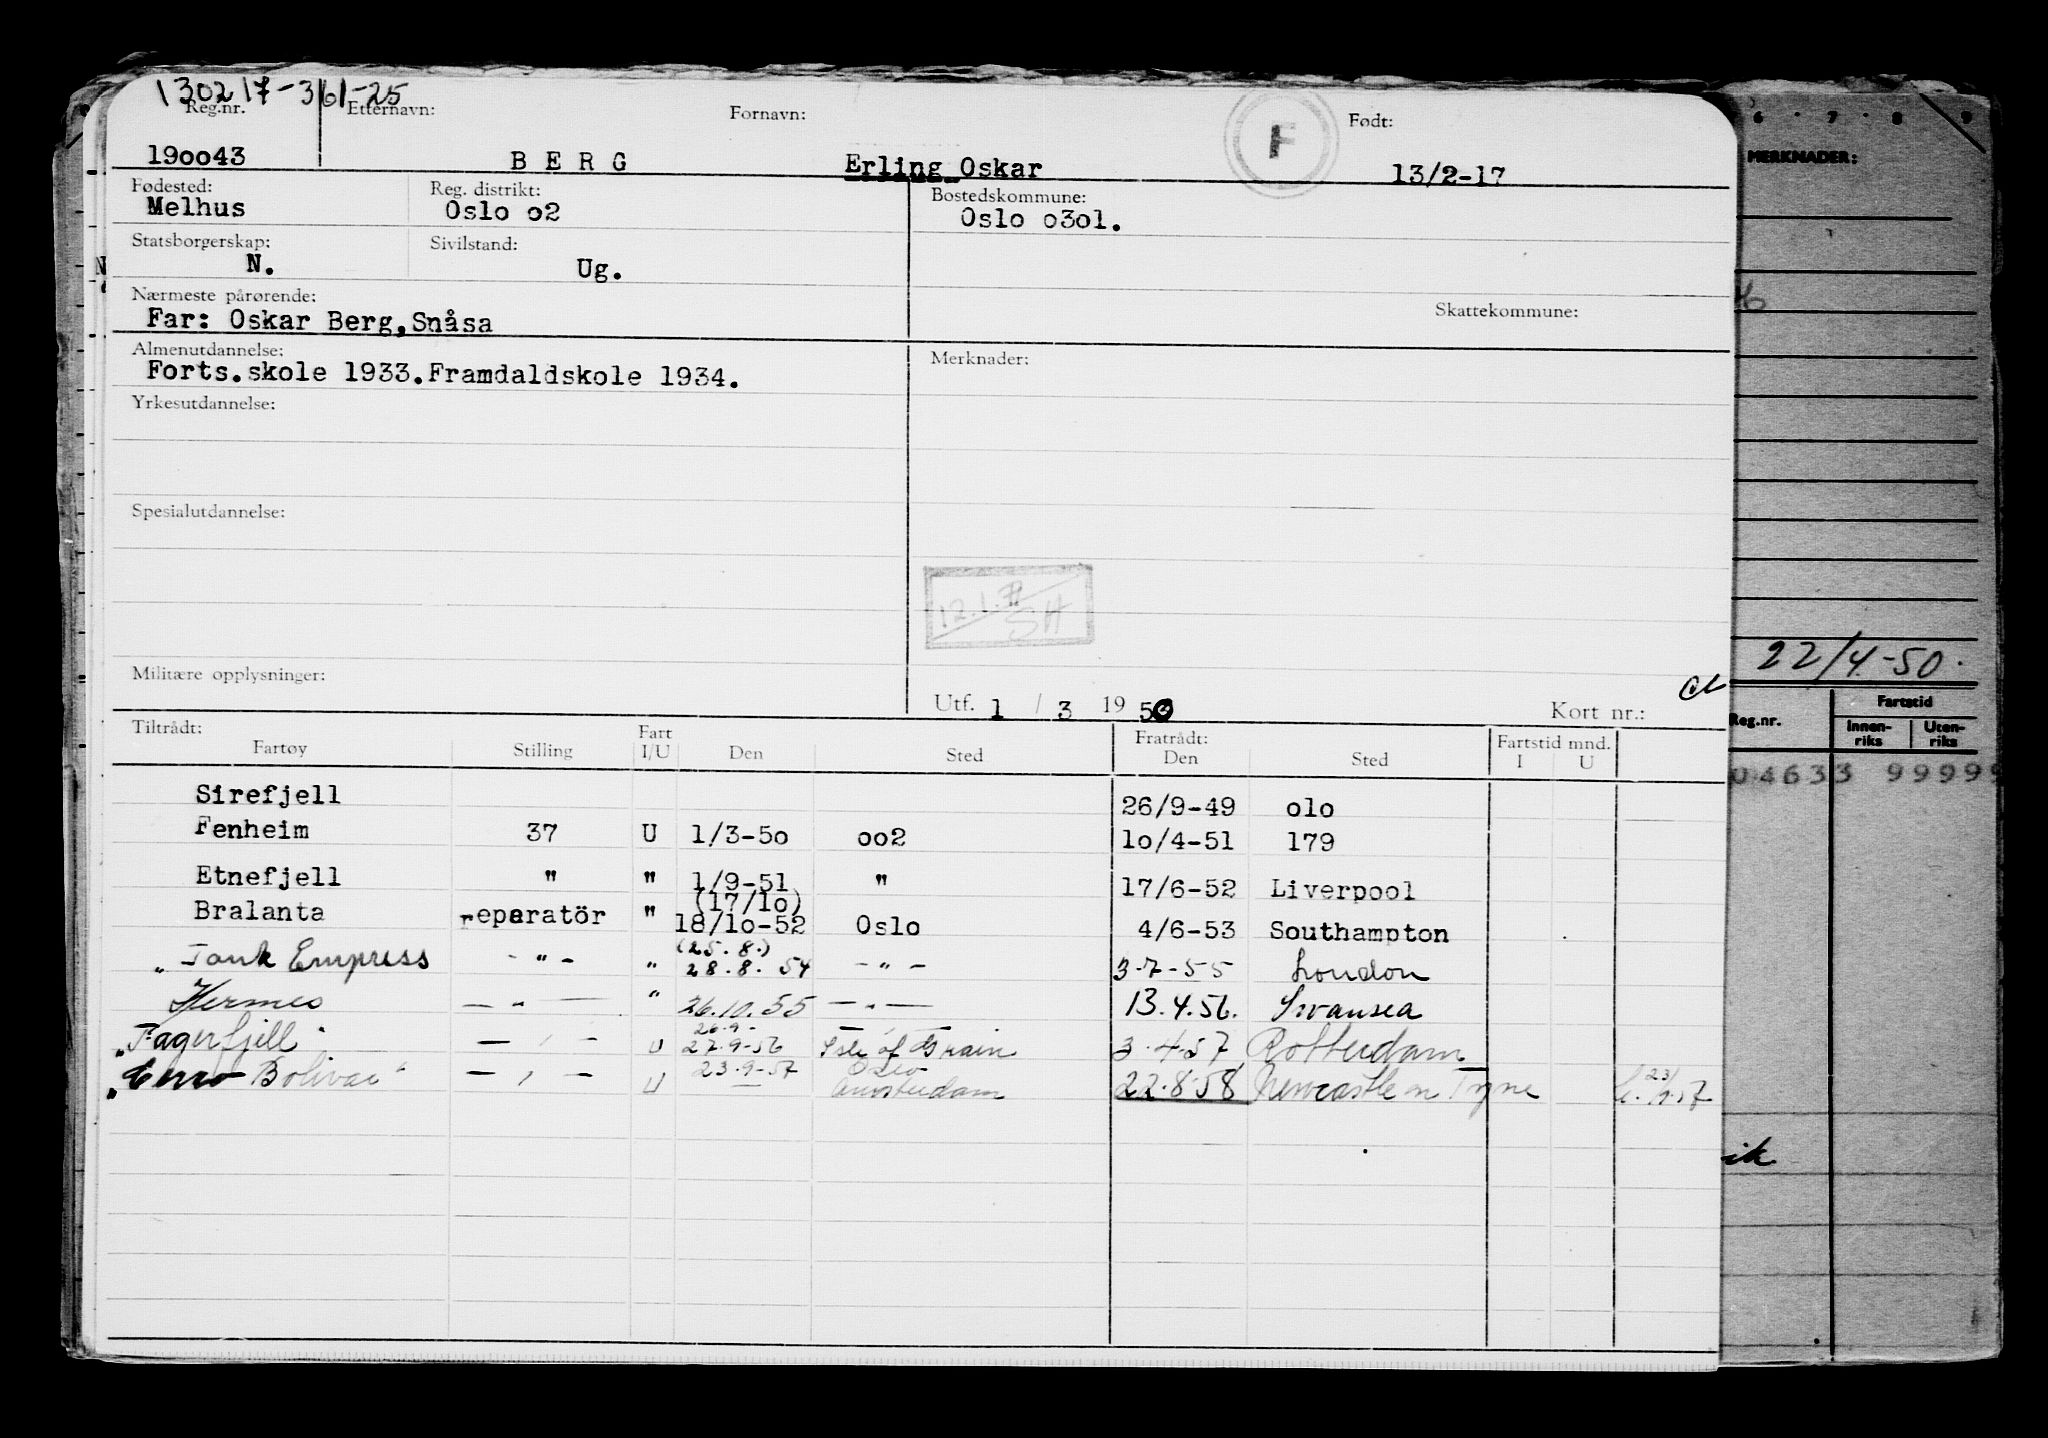 130217-36125
Reg.nr. Etternavn: Fornavn: F Født:
19oo43 B E R G Erling Oskar 13/2-17
Fødested: Reg. distrikt: Bostedskommune:
Melhus Oslo o2 Oslo o3o1.
Statsborgerskap: Sivilstand:
N. Ug.
Nærmeste pårørende: Skattekommune:
Far: Oskar Berg, Snåsa
Almenutdannelse: Merknader:
Forts.skole 1933.Framdaldskole 1934.
Yrkesutdannelse:
Spesialutdannelse:
12.1.
SH
Militære opplysninger:
Utf. 1 / 3 1950 Kort nr.:
Tiltrådt: Fart Fratrådt: Fartstid mnd.
Fartøy Stilling I/U Den Sted Den Sted I U
Sirefjell 26/9-49 olo
Fenheim 37 U 1/3-5o oo2 1o/4-51 179
Etnefjell " " 1/9-51 " 17/6-52 Liverpool
(17/1o)
Bralanta reparatör " 18/1o-52 Oslo 4/6-53 Southampton
(25.8.)
" Tank Empress - " - " 28.8.54 - " - 3-7-55 London
Hermes - " - " 26.10.55 - " - 13.4.56. Swansea
26.9-
"Fagerfjell" - " - U 27.9-56 Isle of Grain 3.4.57 Rotterdam
23.9-57 Oslo
"Cerro Bolivar" - " - U — Amsterdam 22.8.58 Newcastle on Tyne
6 . 7 . 8 . 9
MERKNADER:
22/4-50.
Reg.nr. Fartstid
Innenriks Utenriks
04633 99999
ik